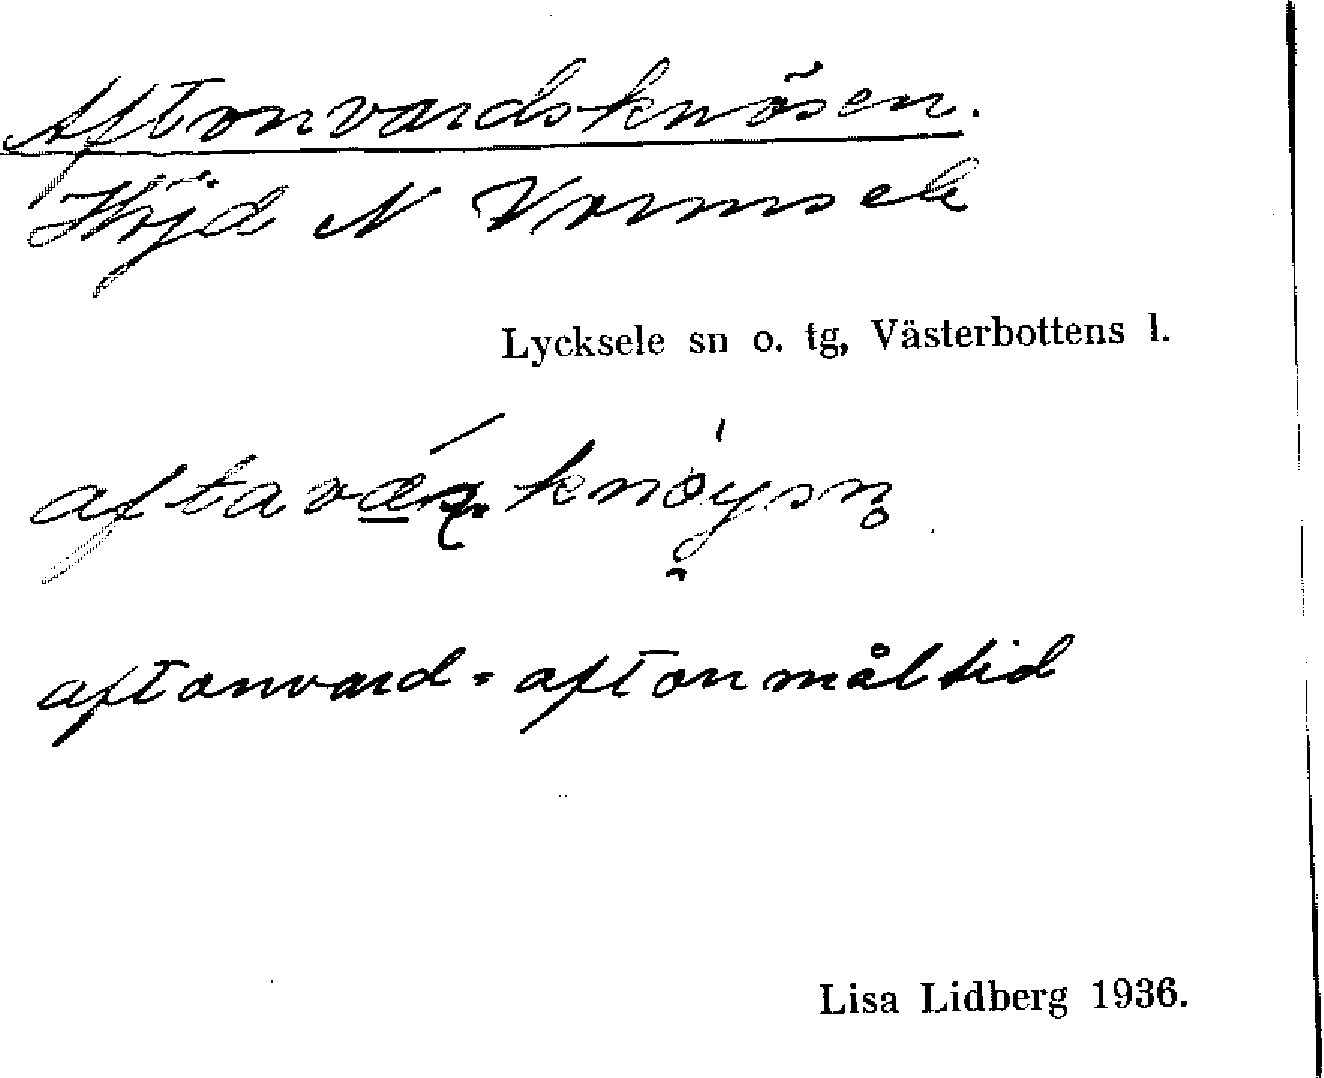 Aftonvardsknösen.
Höjd N Vormsele
Lycksele sn o. tg, Västerbottens l.
aftonvard = aftonmåltid
Lisa Lidberg 1936.